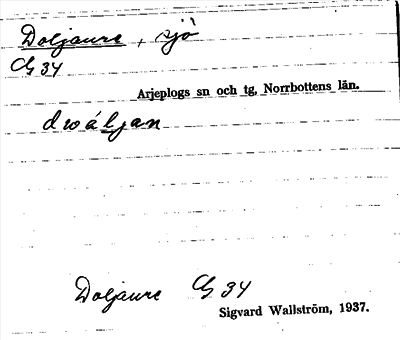 Doljaure, sjö
G 34
Arjeplogs sn och tg, Norrbottens län.
dwáljan
Doljaure G 34
Sigvard Wallström, 1937.